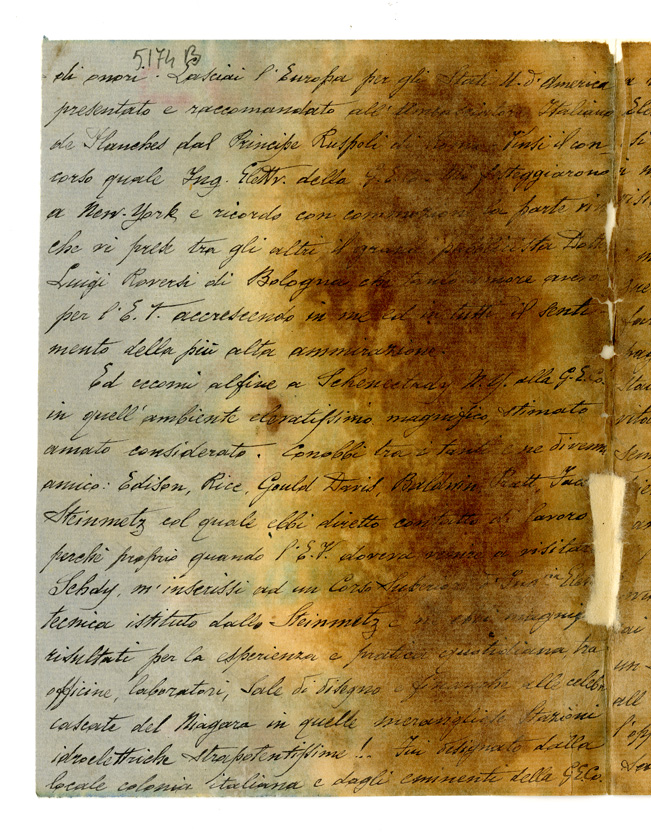 5.174 B
di onori. Lasciai l'Europa per gli Stati U. d'America
presentato e raccomandato all'Ambasciatore Italiano
des Planches dal Principe Ruspoli di Vinsi il con
corso quale Ing. Elettr. della festeggiarono
a New-York e ricordo con commozione la parte viv
che vi prese tra gli altri il Dott.
Luigi Roversi di Bologna che tanto amore aveva
per l'E. V. accrescendo in me ed in tutti il senti-
mento della più alta ammirazione.
Ed eccomi alfine a Schenectady N.Y. alla G.E.Co.
in quell'ambiente elevatissimo magnifico, stimato
amato considerato. Conobbi tra i tanti e ne divenni
amico: Edison, Rice, Gould Davis, Baldwin Pratt,
Steinmetz col quale ebbi diretto contatto di lavoro
perchè proprio quando l'E.V. doveva venire a visitar
Schdy, m'inscrissi ad un Corso Superiore
tecnica istituto dallo Steinmetz e n'ebbi magnif
risultati per la esperienza e pratica quotidiana tra
officine, laboratori, Sale di disegno e finanche alle celebri
cascate del Niagara in quelle meravigliose Stazioni
idroelettriche strapotentissime!! Fui designato dalla
locale colonia italiana e dagli eminenti della G.E.Co.